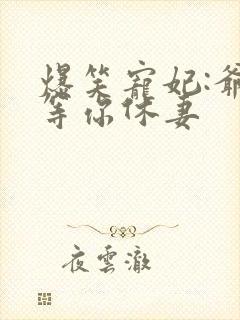 爆笑寵妃:爺
等你休妻
夜雲澈